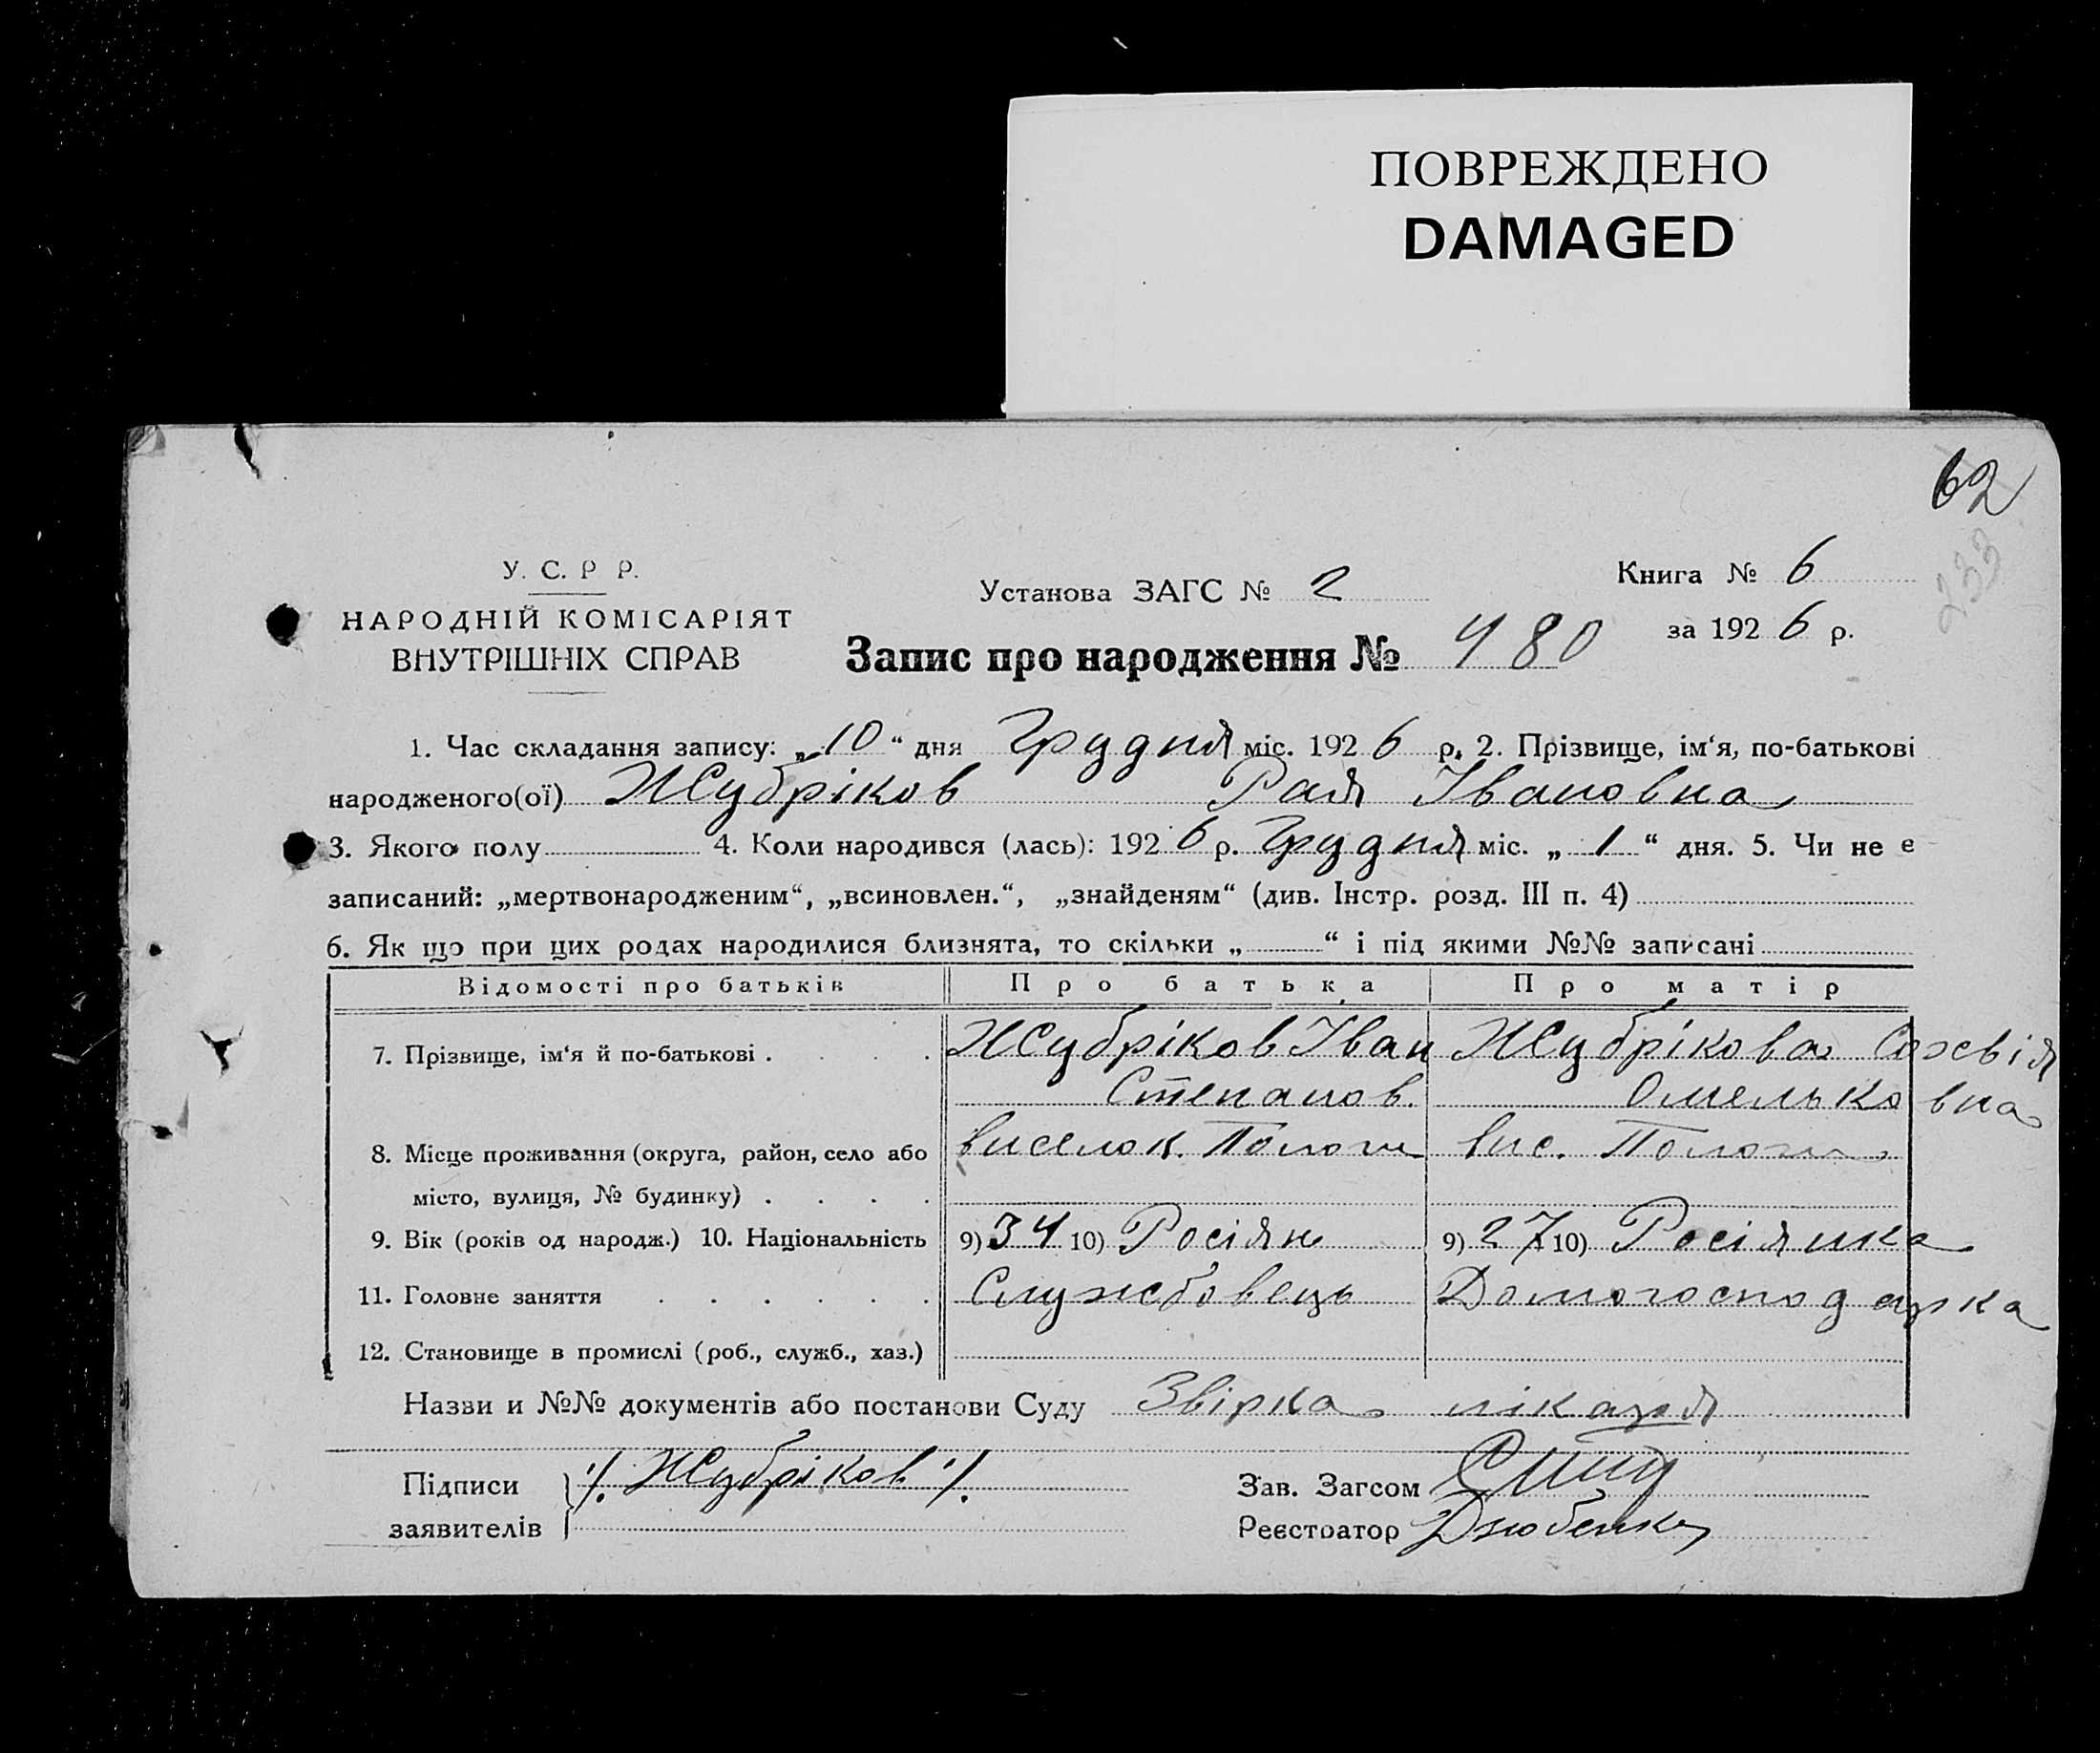 ПОВРЕЖДЕНО
DAMAGED
62
233
У. С. Р Р.
НАРОДНІЙ КОМІСАРІЯТ
ВНУТРІШНІХ СПРАВ
Установа ЗАГС № 2
Книга № 6
за 1926 р.
Запис про народження № 480
1. Час складання запису: „10“ дня Грудня міс. 1926 р. 2. Прізвище, ім‘я, по-батькові
народженого(ої) Жубріков Рая Івановна
3. Якого полу 4. Коли народився (лась): 1926 р. Грудня міс. „1“ дня. 5. Чи не є
записаний: „мертвонародженим“, „всиновлен.“, „знайденям“ (див. Інстр. розд. III п. 4)
6. Як що при цих родах народилися близнята, то скільки „ “ і під якими №№ записані
Відомості про батьків Про батька Про матір
7. Прізвище, ім‘я й по-батькові . . . . Жубріков Іван Жубрікова
Степанов. Омельковна
8. Місце проживання (округа, район, село або виселок. Пологи вис. Пологи
місто, вулиця, № будинку) . . . .
9. Вік (років од народж.) 10. Національність 9) 34 10) Росіян 9) 27 10) Росіянка
11. Головне заняття . . . . . . Службовець Домогосподарка
12. Становище в промислі (роб., служб., хаз.)
Назви и №№ документів або постанови Суду Звірка лікаря
Підписи ./. Жубріков ./. Зав. Загсом
заявителів Реєстратор Дзюбенко